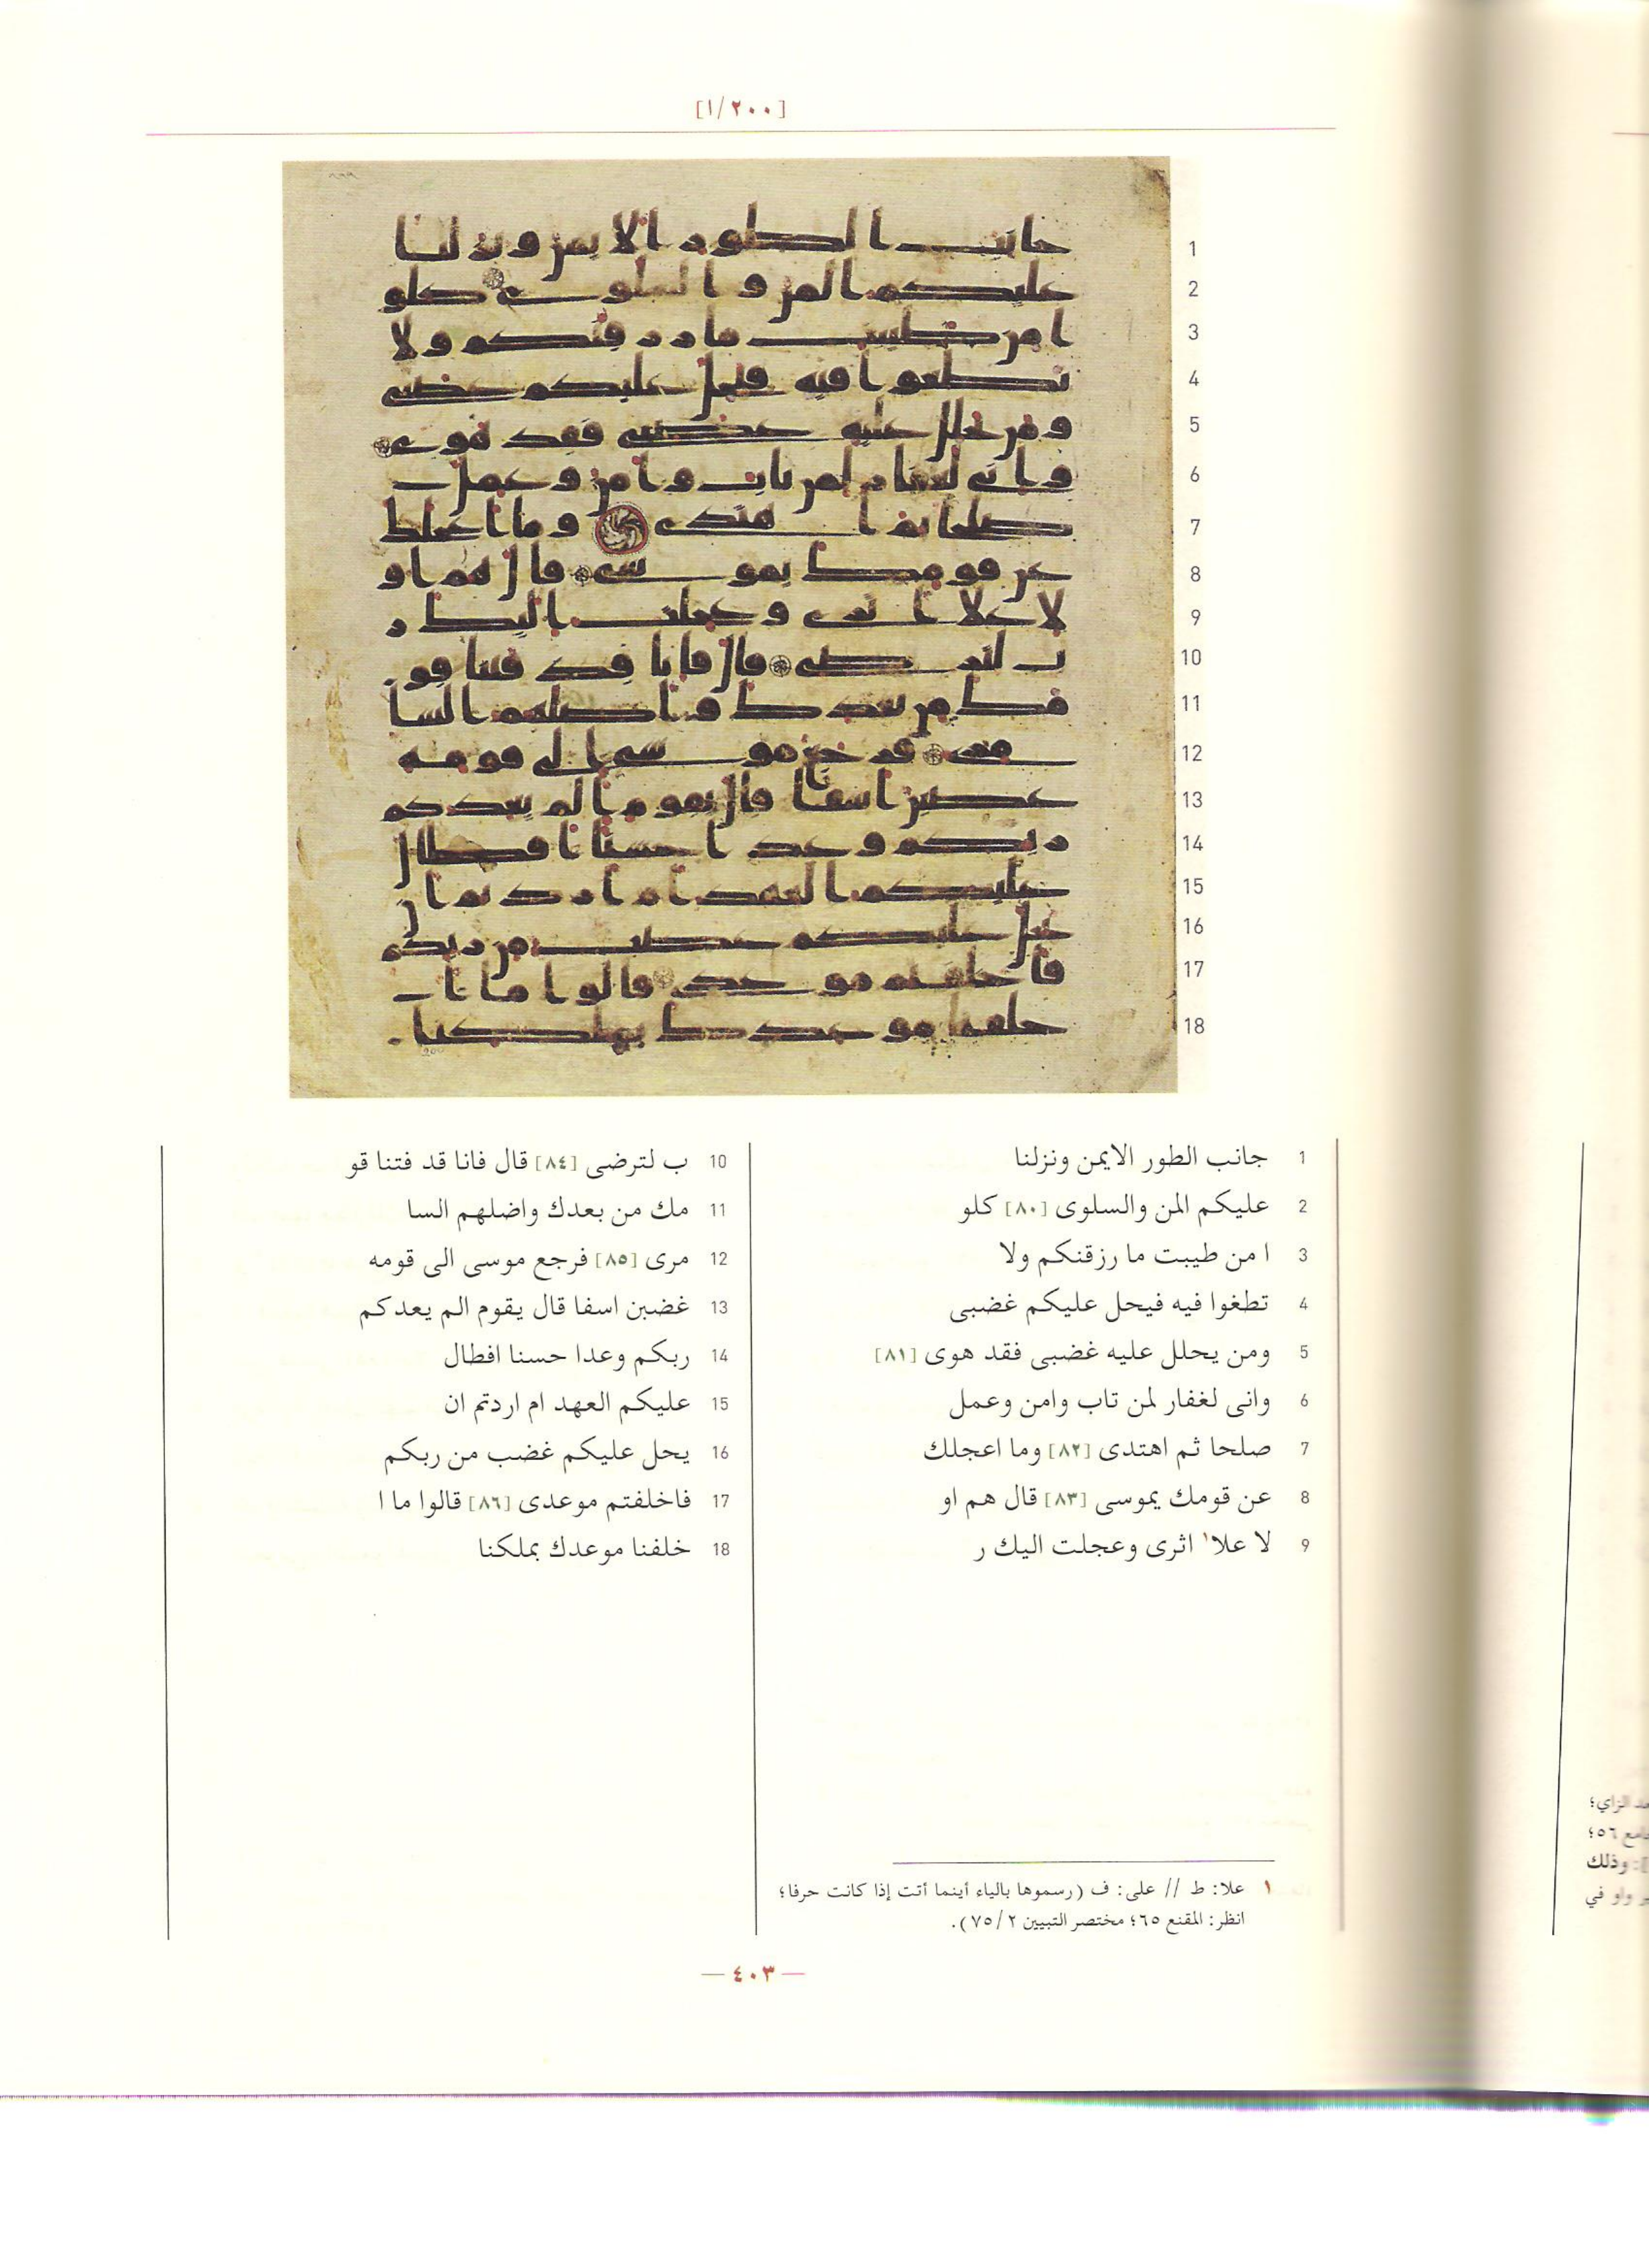 [١/٢٠٠]
1 جانب الطور الايمن ونزلنا
2 عليكم المن والسلوى [٨٠] كلو
3 ا من طيبت ما رزقنكم ولا
4 تطغوا فيه فيحل عليكم غضبى
5 ومن يحلل عليه غضبى فقد هوى [٨١]
6 وانى لغفار لمن تاب وامن وعمل
7 صلحا ثم اهتدى [٨٢] وما اعجلك
8 عن قومك يموسى [٨٣] قال هم او
9 لا علا١ اثرى وعجلت اليك ر
10 ب لترضى [٨٤] قال فانا قد فتنا قو
11 مك من بعدك واضلهم السا
12 مرى [٨٥] فرجع موسى الى قومه
13 غضبن اسفا قال يقوم الم يعدكم
14 ربكم وعدا حسنا افطال
15 عليكم العهد ام اردتم ان
16 يحل عليكم غضب من ربكم
17 فاخلفتم موعدى [٨٦] قالوا ما ا
18 خلفنا موعدك بملكنا
١ علا: ط // على: ف (رسموها بالياء أينما أتت إذا كانت حرفا؛
انظر: المقنع ٦٥؛ مختصر التبيين ٧٥/٢).
— ٤٠٣ —